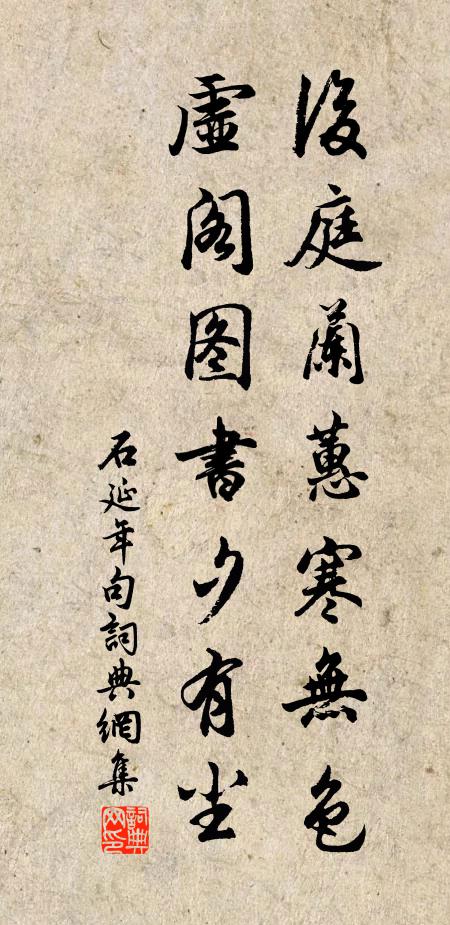 後庭蘭蕙寒無色
虛阁图書夕有尘
石延年句詞典網集
詞典
网印